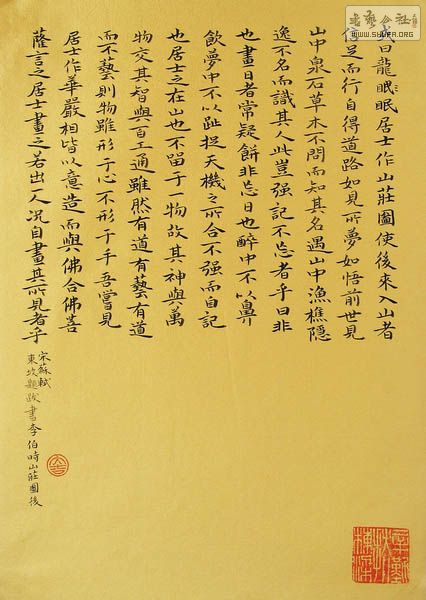 書藝公社
WWW.SHUFA.ORG
或曰龍眠眠居士作山莊圖使後來入山者
信足而行自得道路如見所夢如悟前世見
山中泉石草木不問而知其名遇山中漁樵隱
逸不名而識其人此豈强記不忘者乎曰非
也畫日者常疑餅非忘日也醉中不以鼻
飲夢中不以趾捉天機之所合不强而自記
也居士之在山也不留于一物故其神與萬
物交其智與百工通雖然有道有藝有道
而不藝則物雖形于心不形于手吾嘗見
居士作華嚴相皆以意造而與佛合佛菩
薩言之居士畫之若出一人况自畫其所見者乎
宋蘇軾
東坡題跋書李伯時山莊圖後